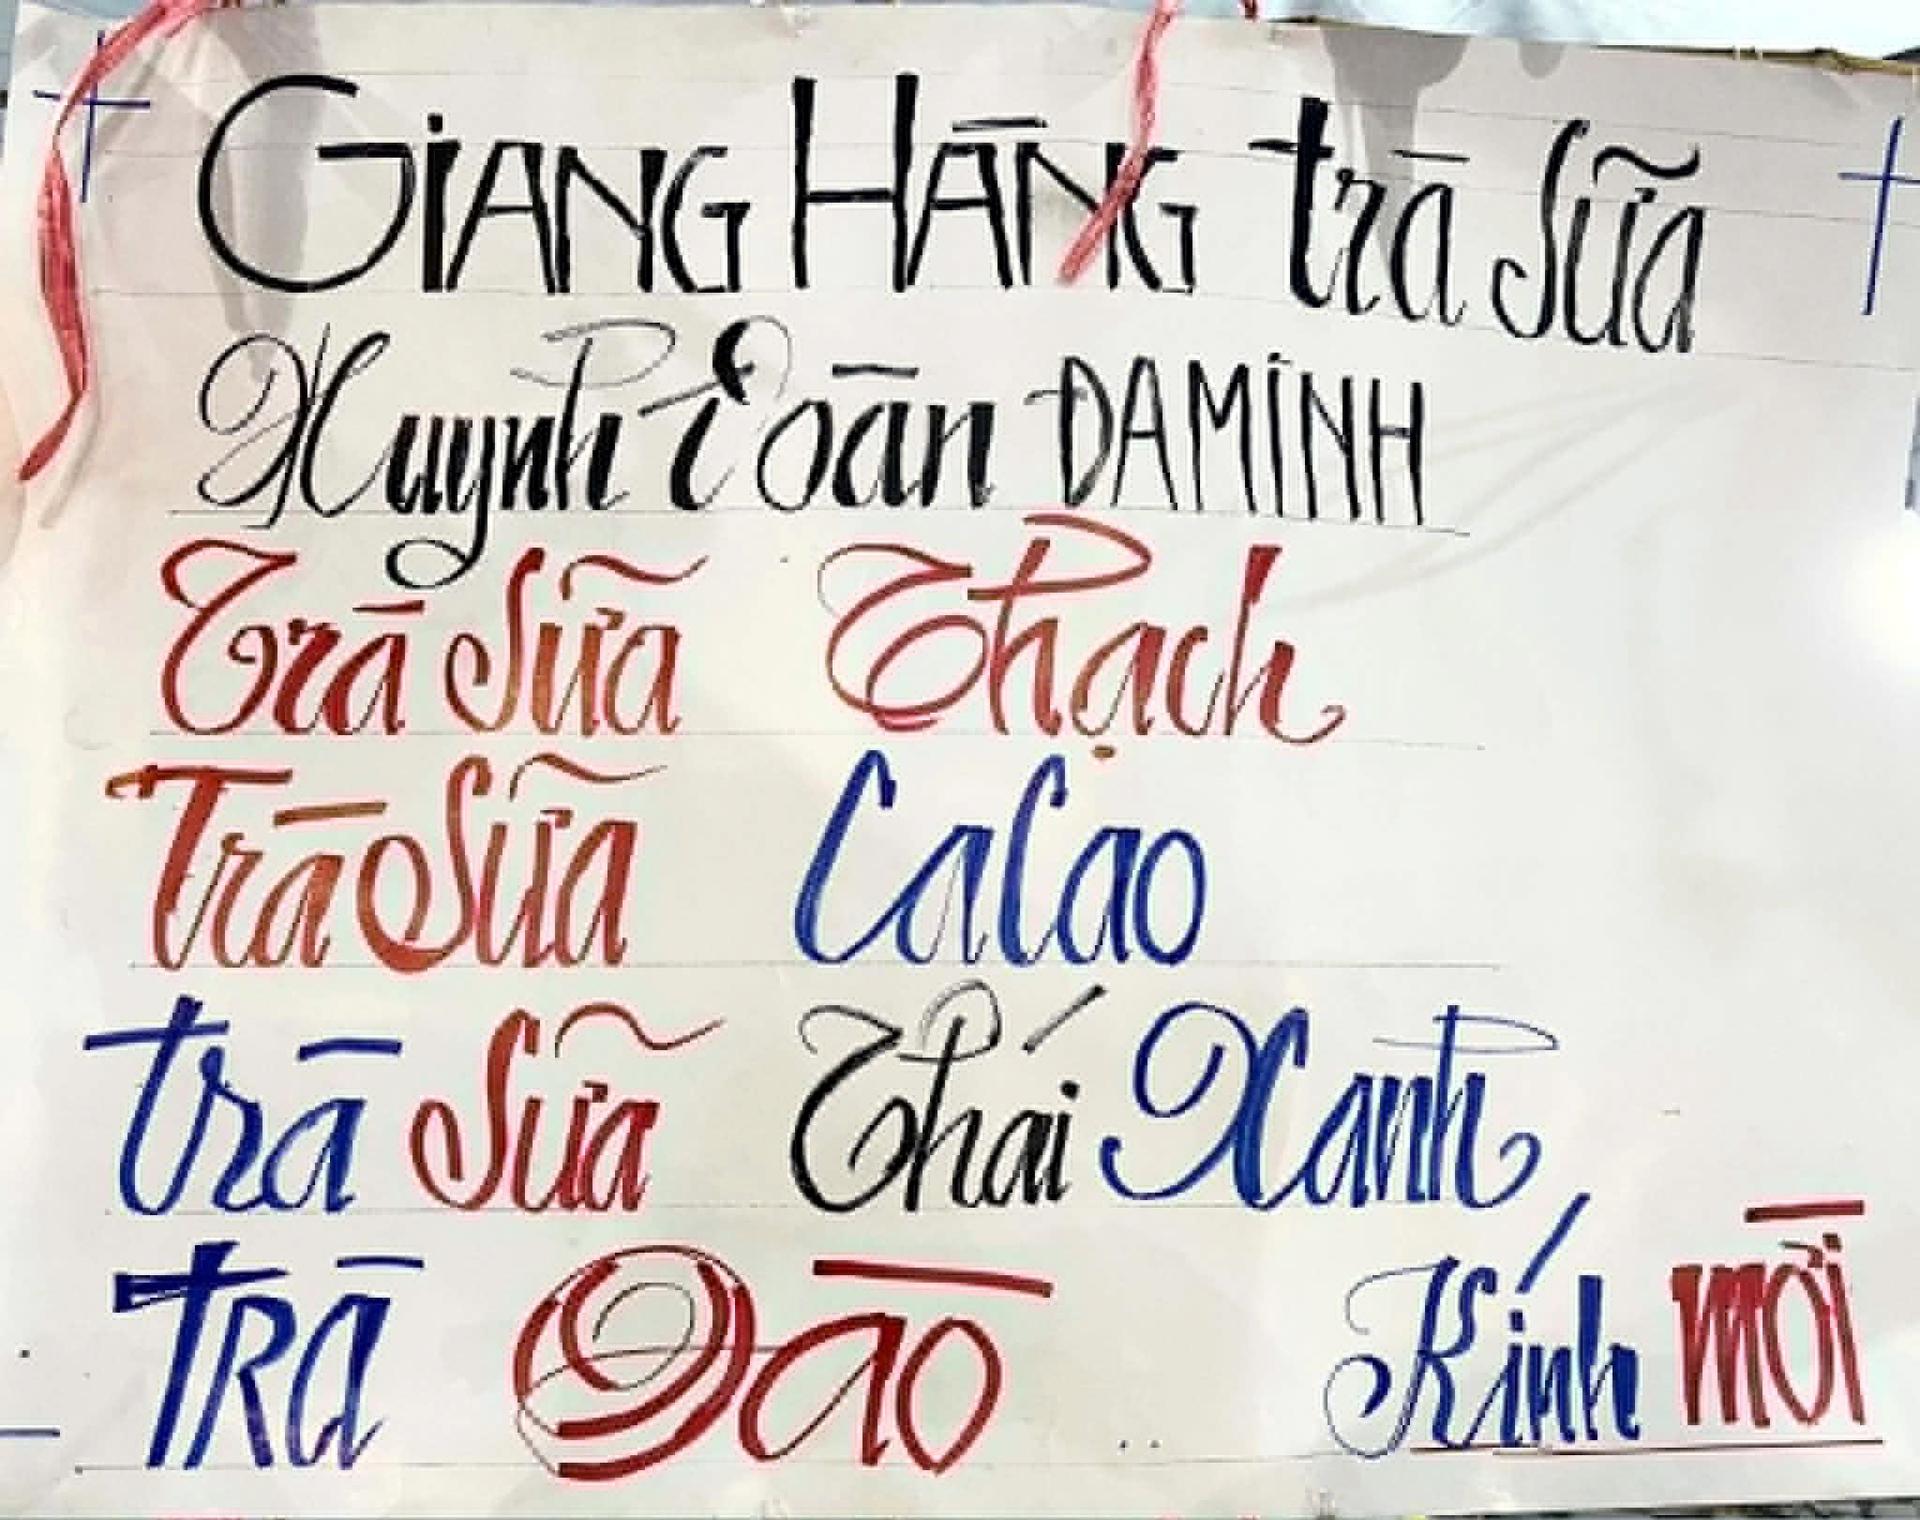 GIANG HÀNG trà sữa
Huynh Đoàn ĐAMINH
Trà sữa Thạch
Trà sữa CaCao
trà sữa Thái Xanh
TRÀ Đào Kính mời